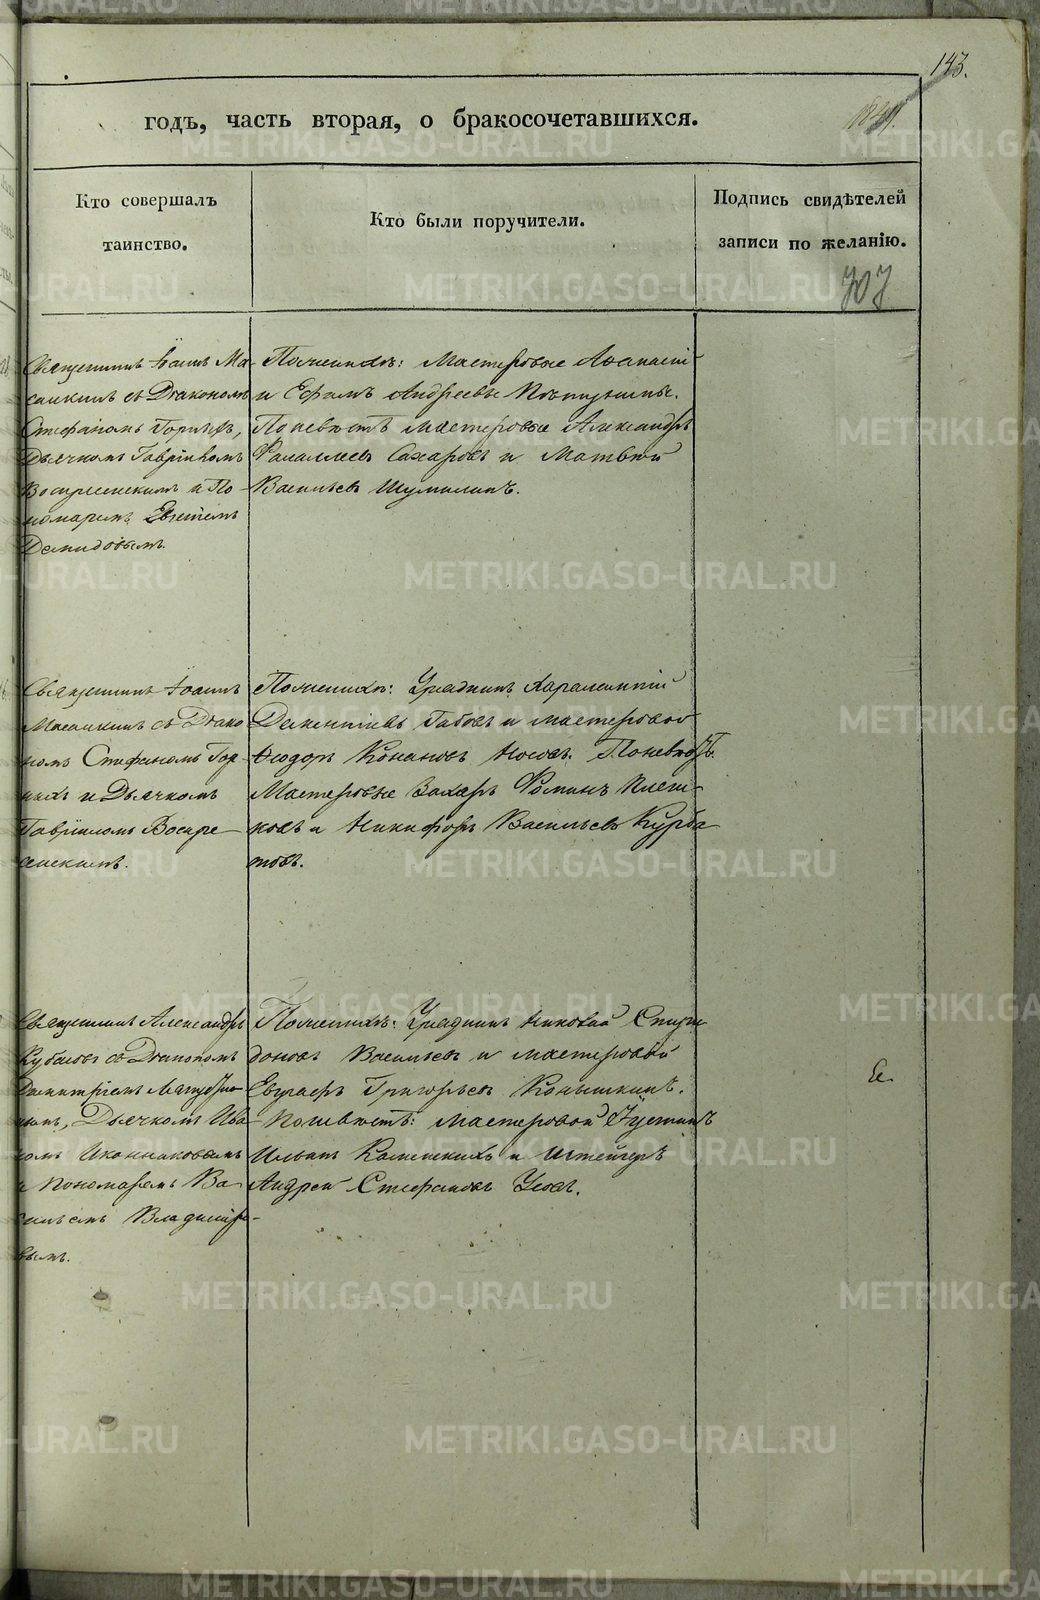 143.
годъ, часть вторая, о бракосочетавшихся.
Кто совершалъ
таинство.
Кто были поручители.
Подпись свидѣтелей
записи по желанію.
707
Священникъ Іоаннъ
съ Діакономъ
Стефаномъ
Дьячкомъ Гавріиломъ
Воскресенскимъ и По-
номаремъ
Демидовымъ.
Поженихѣ: Мастеровые Аѳанасій
и Ефимъ Андреевы
Поневѣстѣ мастеровые Александръ
Сахаровъ и Матвей
Васильевъ Шумилинъ.
Священникъ Іоаннъ
съ Діако
номъ Стефаномъ Гор-
ныхъ и Дьячкомъ
Гавріиломъ Воскре-
сенскимъ.
Поженихѣ: Урядникъ Харалампій
и мастеровой
Ѳеодоръ Кононовъ Носовъ. Поневѣстѣ.
Мастеровые Захаръ Романъ
ковъ и Никифоръ Васильевъ Курба
товъ.
Священникъ Александръ
съ Діакономъ
Димитріемъ
Дьячкомъ Ива
номъ Иконниковымъ
и Пономаремъ Ва
сильемъ Владиміро-
вымъ.
Поженихѣ: Урядникъ Николай Спири
доновъ Васильевъ и мастеровой
Григорьевъ Конышкинъ.
Поневѣстѣ: Мастеровой Іустинъ
Ильинъ Каменскихъ и Штейгеръ
Андрей Стефановъ Усовъ.
METRIKI.GASO-URAL.RU